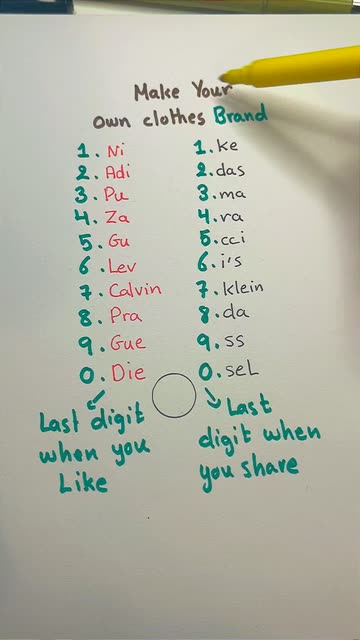 Make Your
own clothes Brand
1. Ni 1. ke
2. Adi 2. das
3. Pu 3. ma
4. Za 4. ra
5. Gu 5. cci
6. Lev 6. i's
7. Calvin 7. klein
8. Pra 8. da
9. Gue 9. ss
0. Die 0. seL
Last digit
when you
Like
Last
digit when
you share